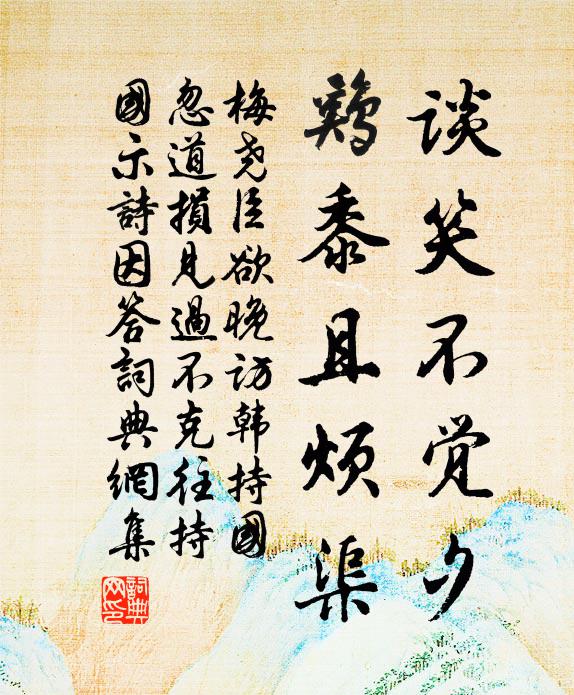 谈笑不觉夕
鸡黍且烦渠
梅尧臣欲晚访韩持國
忽道損見過不克往持
國示詩因答詞典網集
詞典
网印